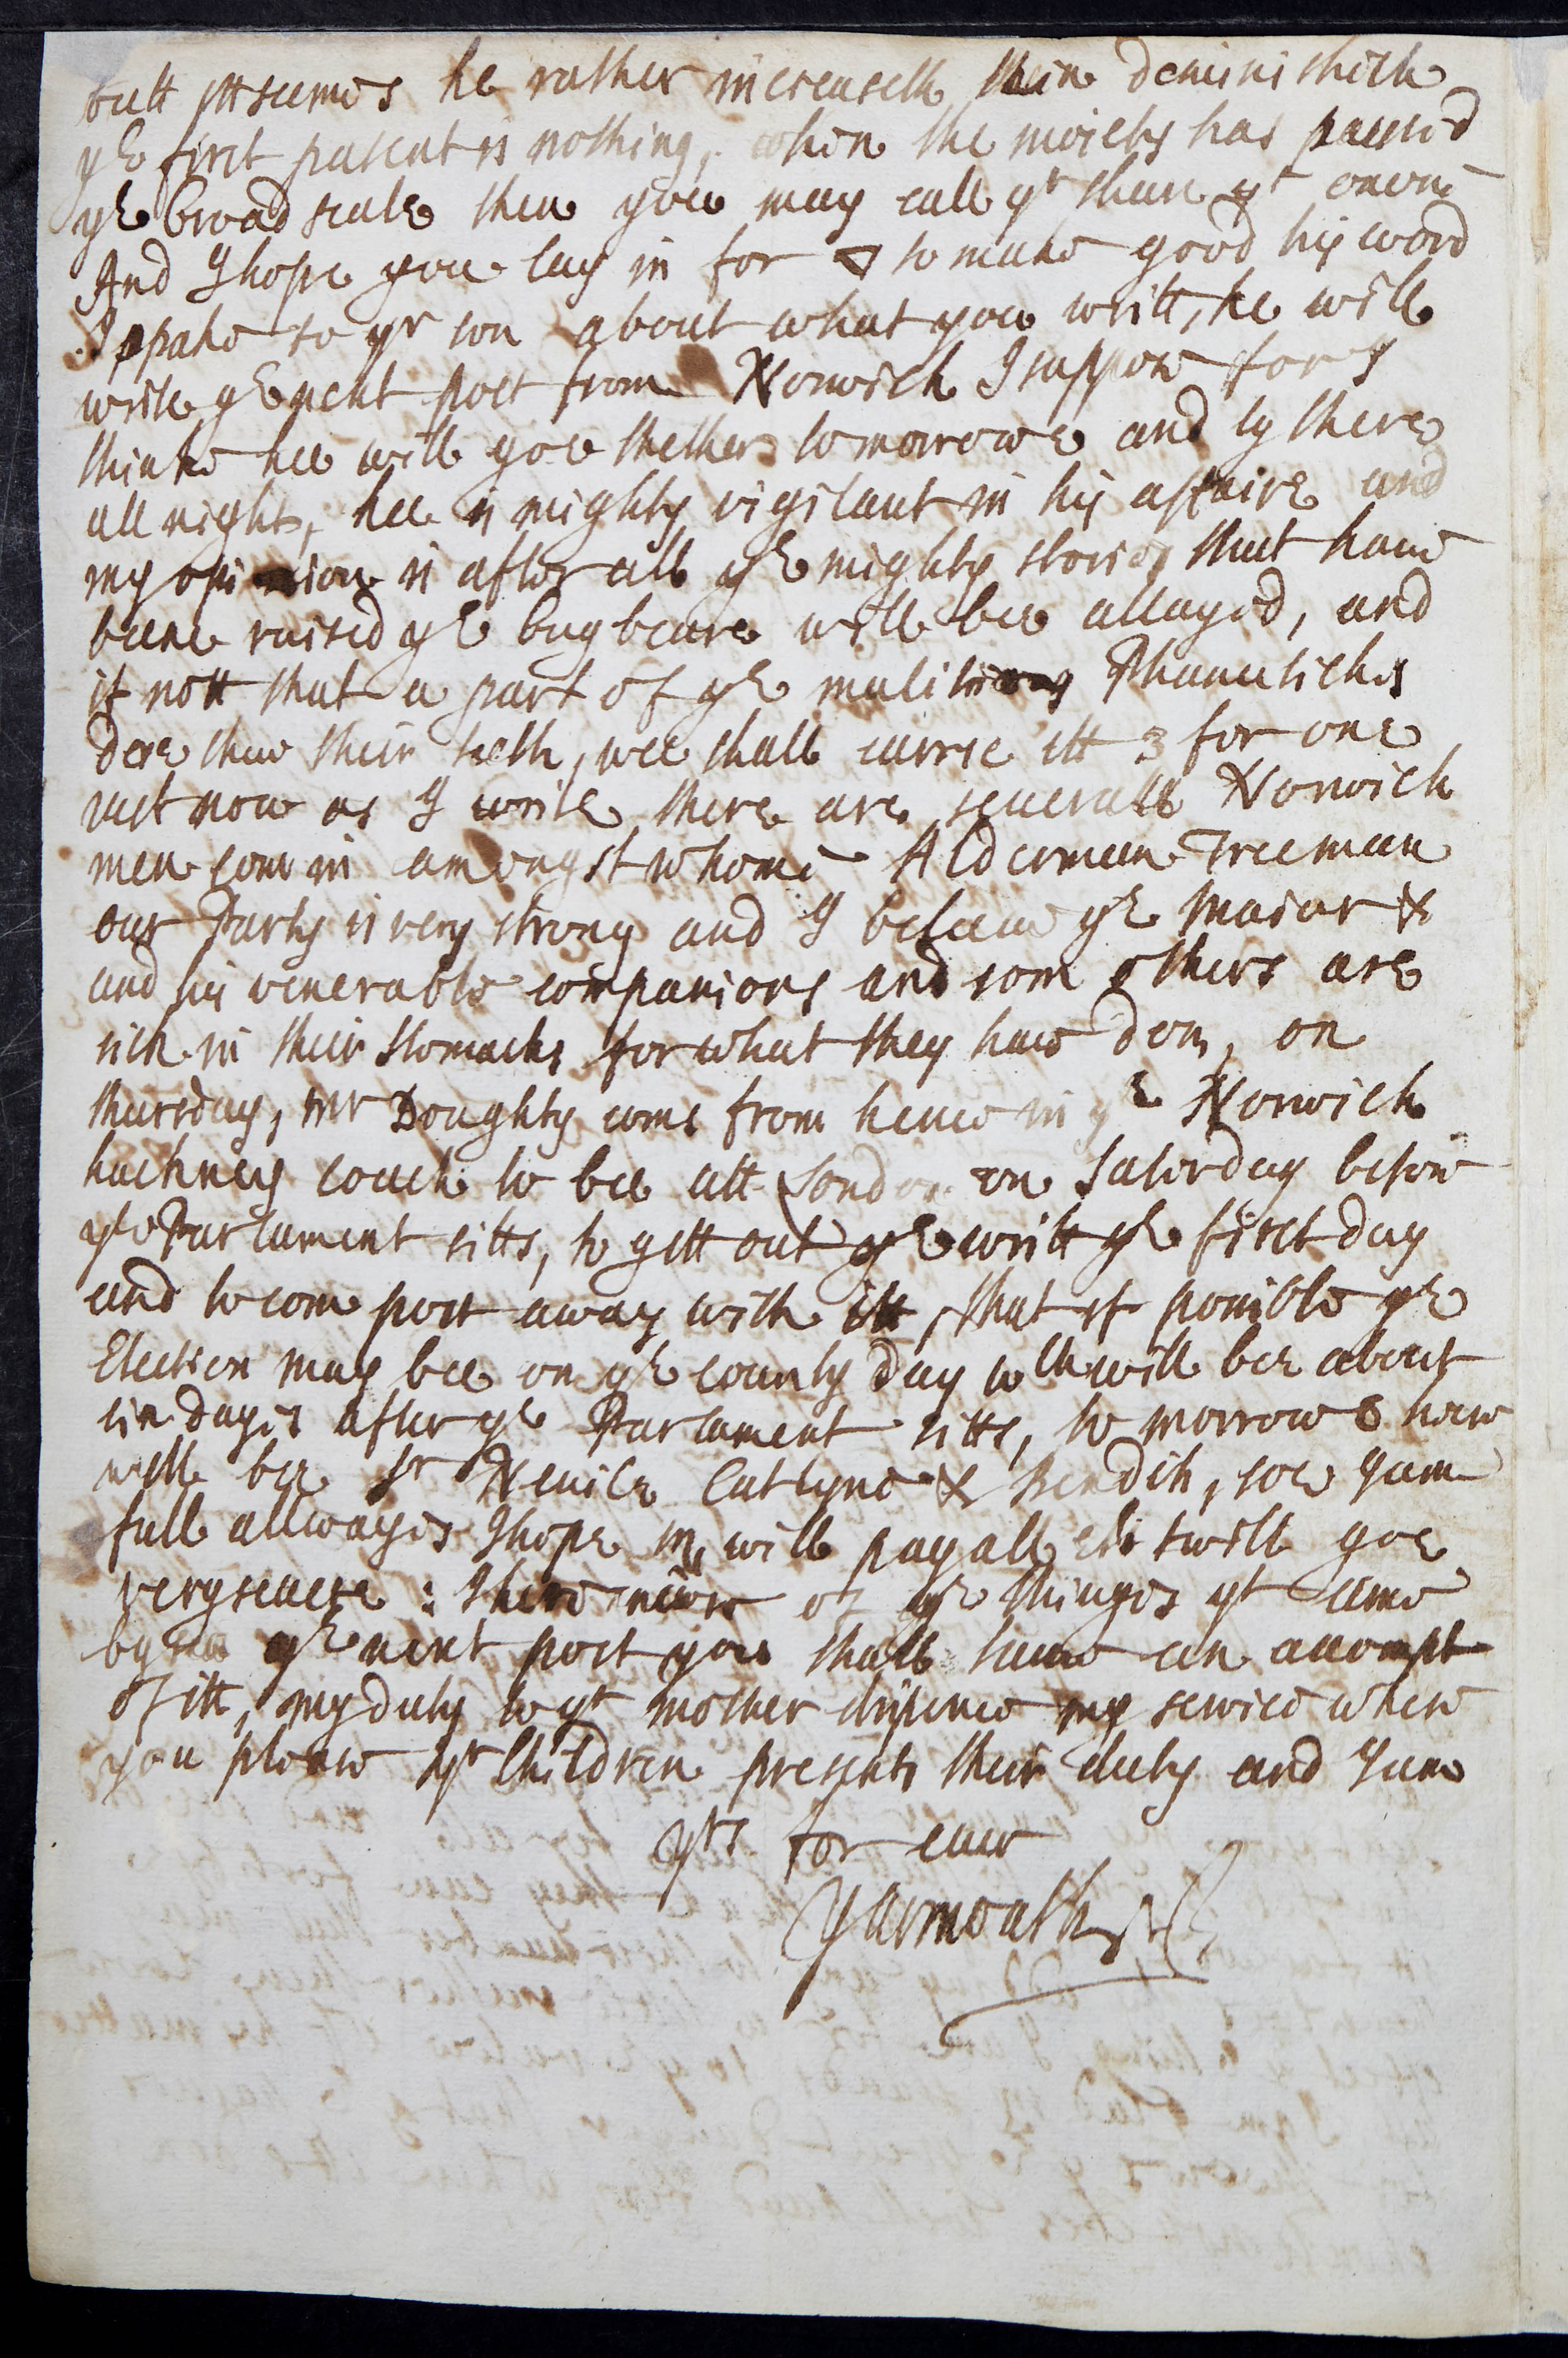 butt itt seemes he rather increaseth then deminisheth
ye first patent is nothing, when the moiety has passed
ye broad seale then you may call yt share yr owne
And I hope you lay in for to make good his word
I spake to yr son about what you writt, he will
write ye next post from Norwich I suppose for I
thinke hee will goe thether tomorrowe and ly there
all night, hee is mighty vigilant in his affaire and
my opinion is after all ye mighty stories that have
beene raised ye bugbeare will bee allayed, and
if nott that a part of ye malitious Phanatickes
doe shew their teeth, wee shall carrie itt 3 for one
just now as I write there are severall Norwich
men com in amongst whome Alderman Freeman
our Party is very strong and I beleeve ye Maior &
and his venerable companions and som others are
sick in their stomacks for what they have don, on
thursday, Mr Doughty coms from hence in ye Norwich
hackney coach to bee att London on Saterday before
ye Parlament sitts, to gett out ye writt ye first day
and to come post away with itt, that if possible ye
Election may bee on ye county day wch will bee about
six dayes after ye Parlament sitts, to morrow here
will bee Sr Nevile Catlyne & Bendish, soe I am
full allwayes I hope will pay all els twill goe
very severe: of ye thinges yt came
by ye next post you shall have an accompt
of itt, my duty to yr mother dispence my service where
you please yr Children presents their duty and I am
yrs for ever
Yarmouth